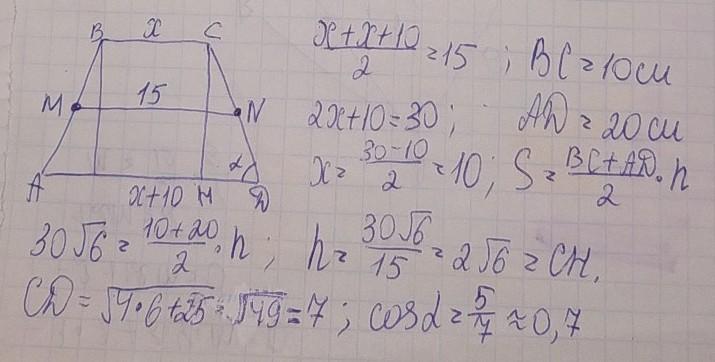 B x C
M 15 N
A x+10 H D α
(x+x+10)/2 = 15 ; BC = 10 см
2x+10=30 ; AD = 20 см
x = (30-10)/2 = 10 ; S = (BC+AD)/2 · h
30√6 = (10+20)/2 · h ; h = 30√6/15 = 2√6 = CH.
CD = √(4·6+25) = √49 = 7 ; cosα = 5/7 ≈ 0,7